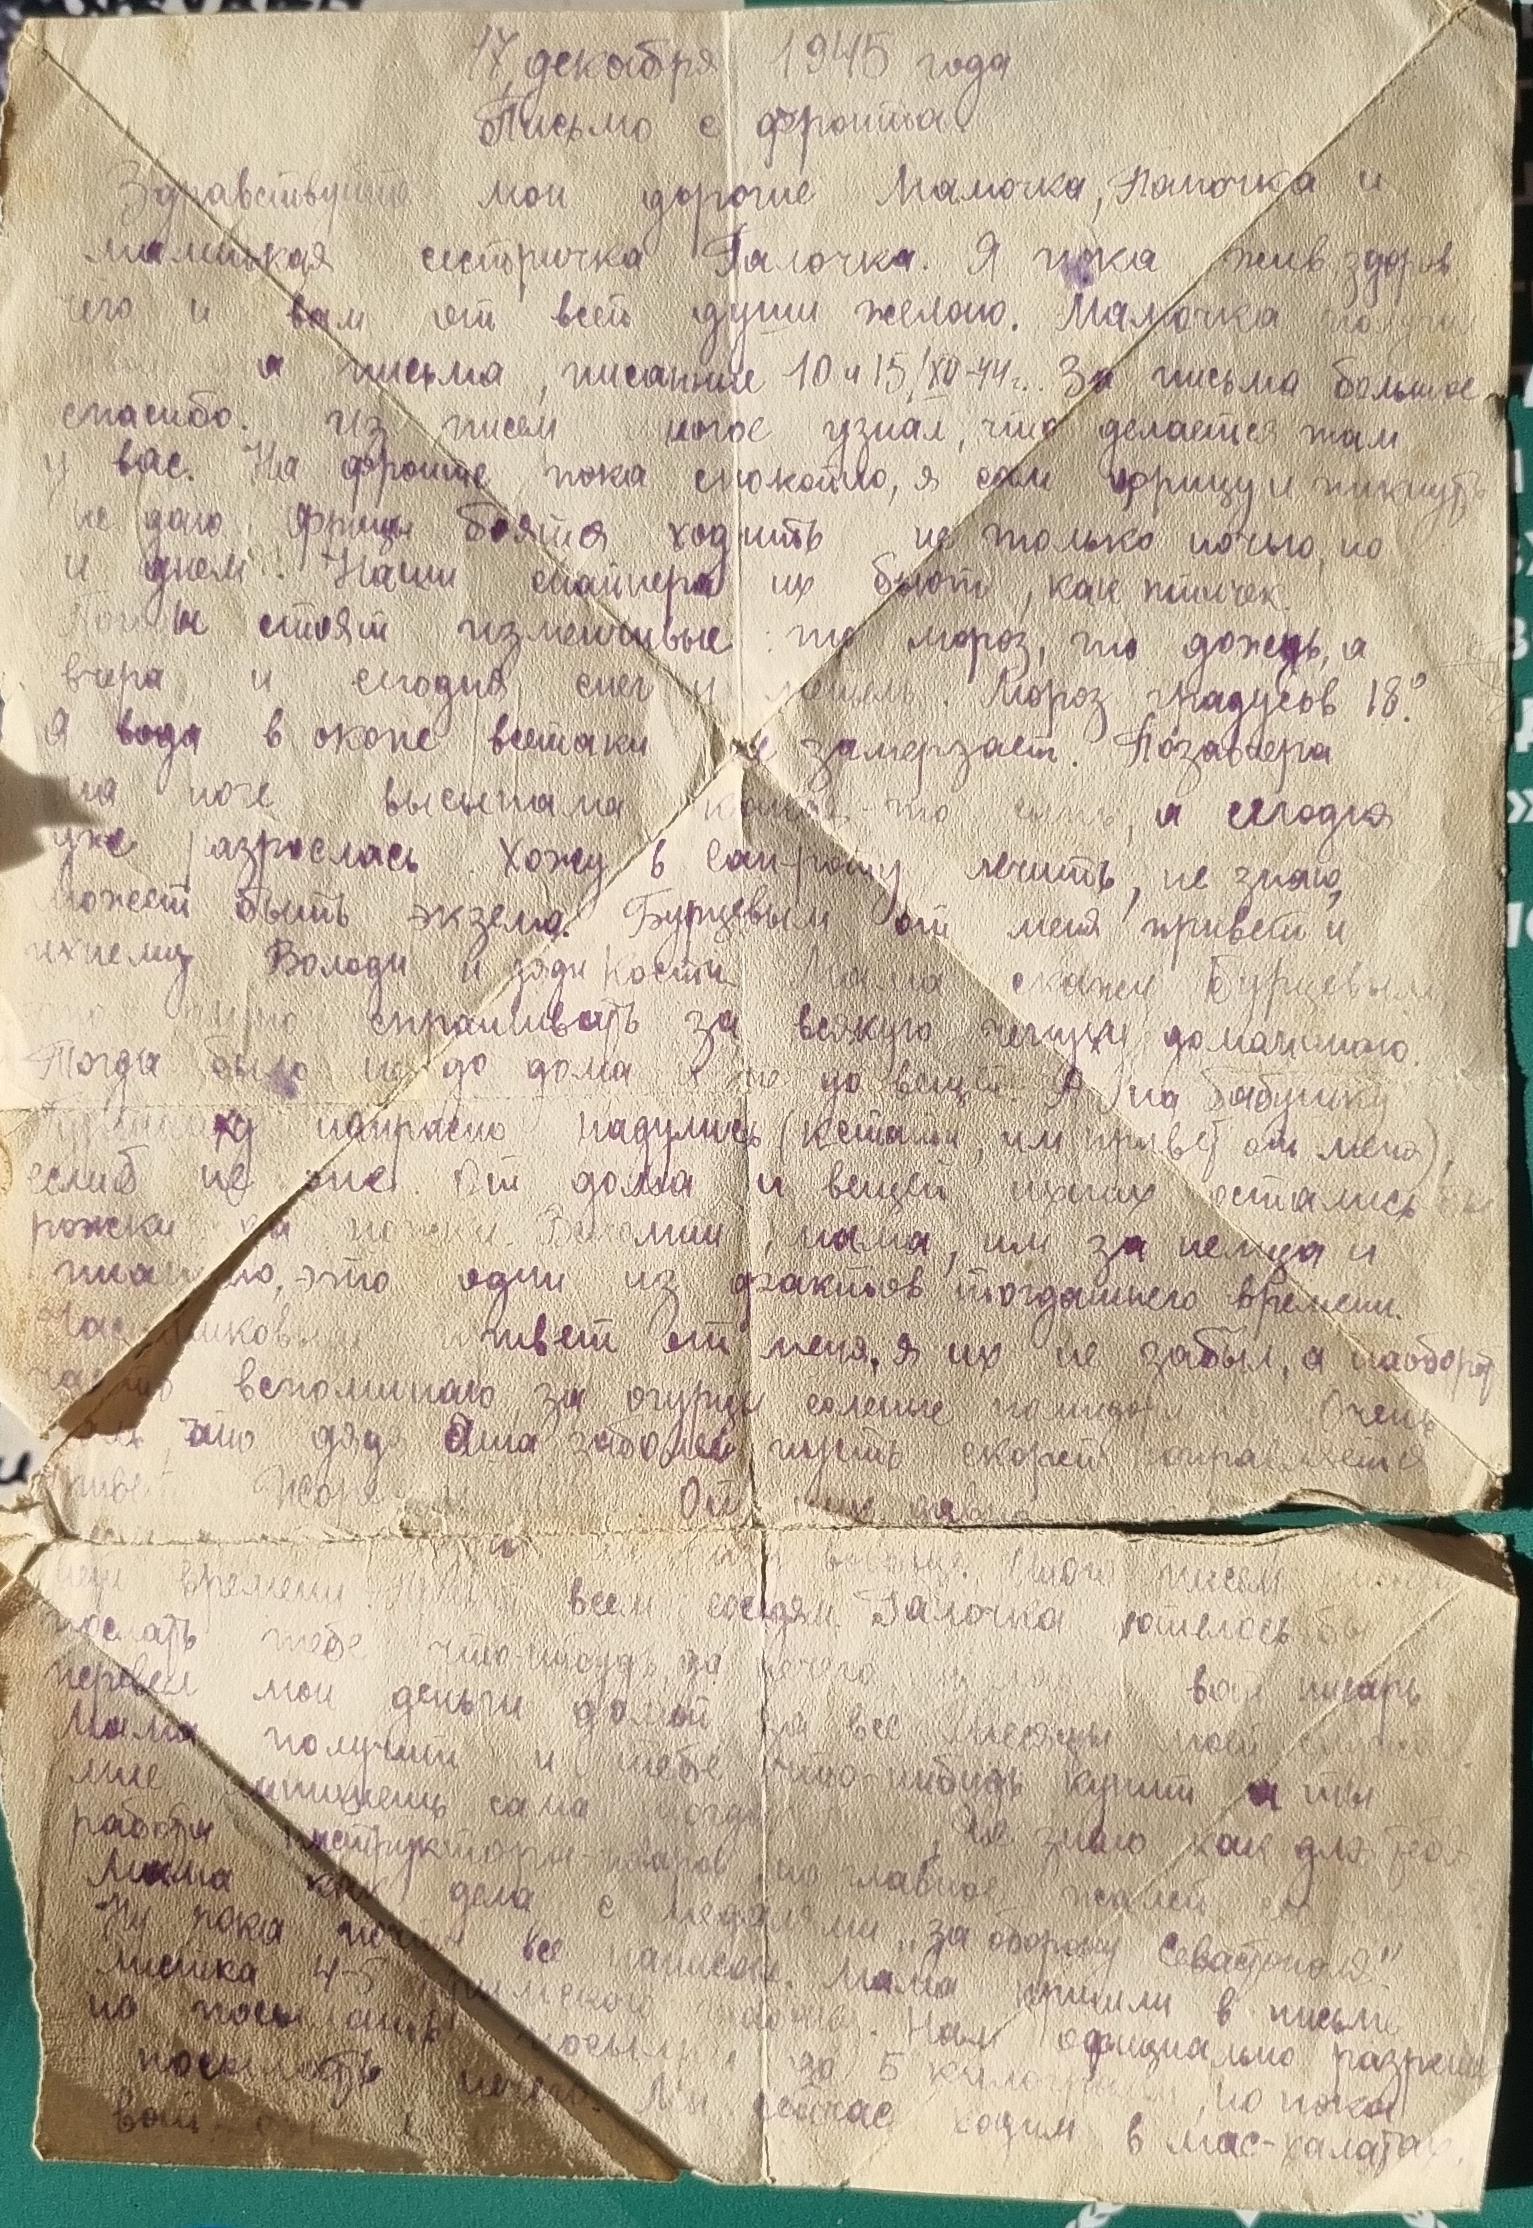 17 декабря 1945 года
Письмо с фронта.
Здравствуйте мои дорогие Мамочка, Папочка и
маленькая сестричка Галочка. Я пока жив здоров
чего и вам от всей души желаю. Мамочка получил
я письма, писанные 10 и 15/XII-44г. За письма большое
спасибо. Из писем многое узнал, что делается там
у вас. На фронте пока спокойно, я сам фрицу и пикнуть
не даю, фрицы боятся ходить не только ночью, но
и днем! Наши снайпера их бьют, как птичек.
стоят изменчивые: то мороз, то дождь, а
вчера и сегодня снег и метель. Мороз градусов 18°.
А вода в окопе всетаки не замерзает. Позавчера
на ноге высыпала какая-то сыпь, а сегодня
уже разрослась. Хожу в сан-роту лечить, не знаю,
может быть экзема. Бурцевым от меня привет и
ихнему Володи и дяди Кости. Мама скажи Бурцевым,
что спрашивать за всякую чепуху домашнюю.
Тогда было не до дома и не до вещей. А на бабушку
напрасно надулись (кстати, им привет от меня),
еслиб не она. От дома и вещей ихних остались бы
рожки да ножки. Вспомни, мама, им за немца и
это один из фактов тогдашнего времени.
привет от меня, я их не забыл, а наоборот
часто вспоминаю за огурцы соленые (очень
жаль, что дядя заболел пусть скорей справляется
От
вообще. Много писем
нет времени. Привет всем соседям. Галочка хотелось бы
послать тебе что-нибудь да нечего вот писарь
перевел мои деньги домой за все месяцы моей службы.
Мама получит и тебе что-нибудь купит а ты
мне напишешь сама тогда, не знаю как для тебя
работа инструктора-повара но главное
Мама как дела с медалями „за оборону Севастополя"
Ну пока почти все написал. Мама пришли в письме
листика 4-5 Нам официально разреши-
но посылать посылки до 5 килограмм, но пока
посылать нечего. Мы сейчас ходим в мас-халатах,
вот